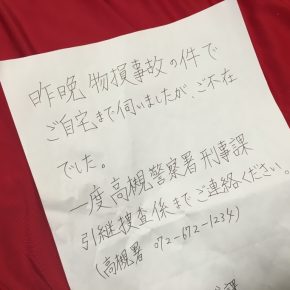 昨晩物損事故の件で
ご自宅まで伺いましたが、ご不在
でした。
一度高槻警察署刑事課
引継捜査係までご連絡ください。
(高槻署 072-672-1234)
課